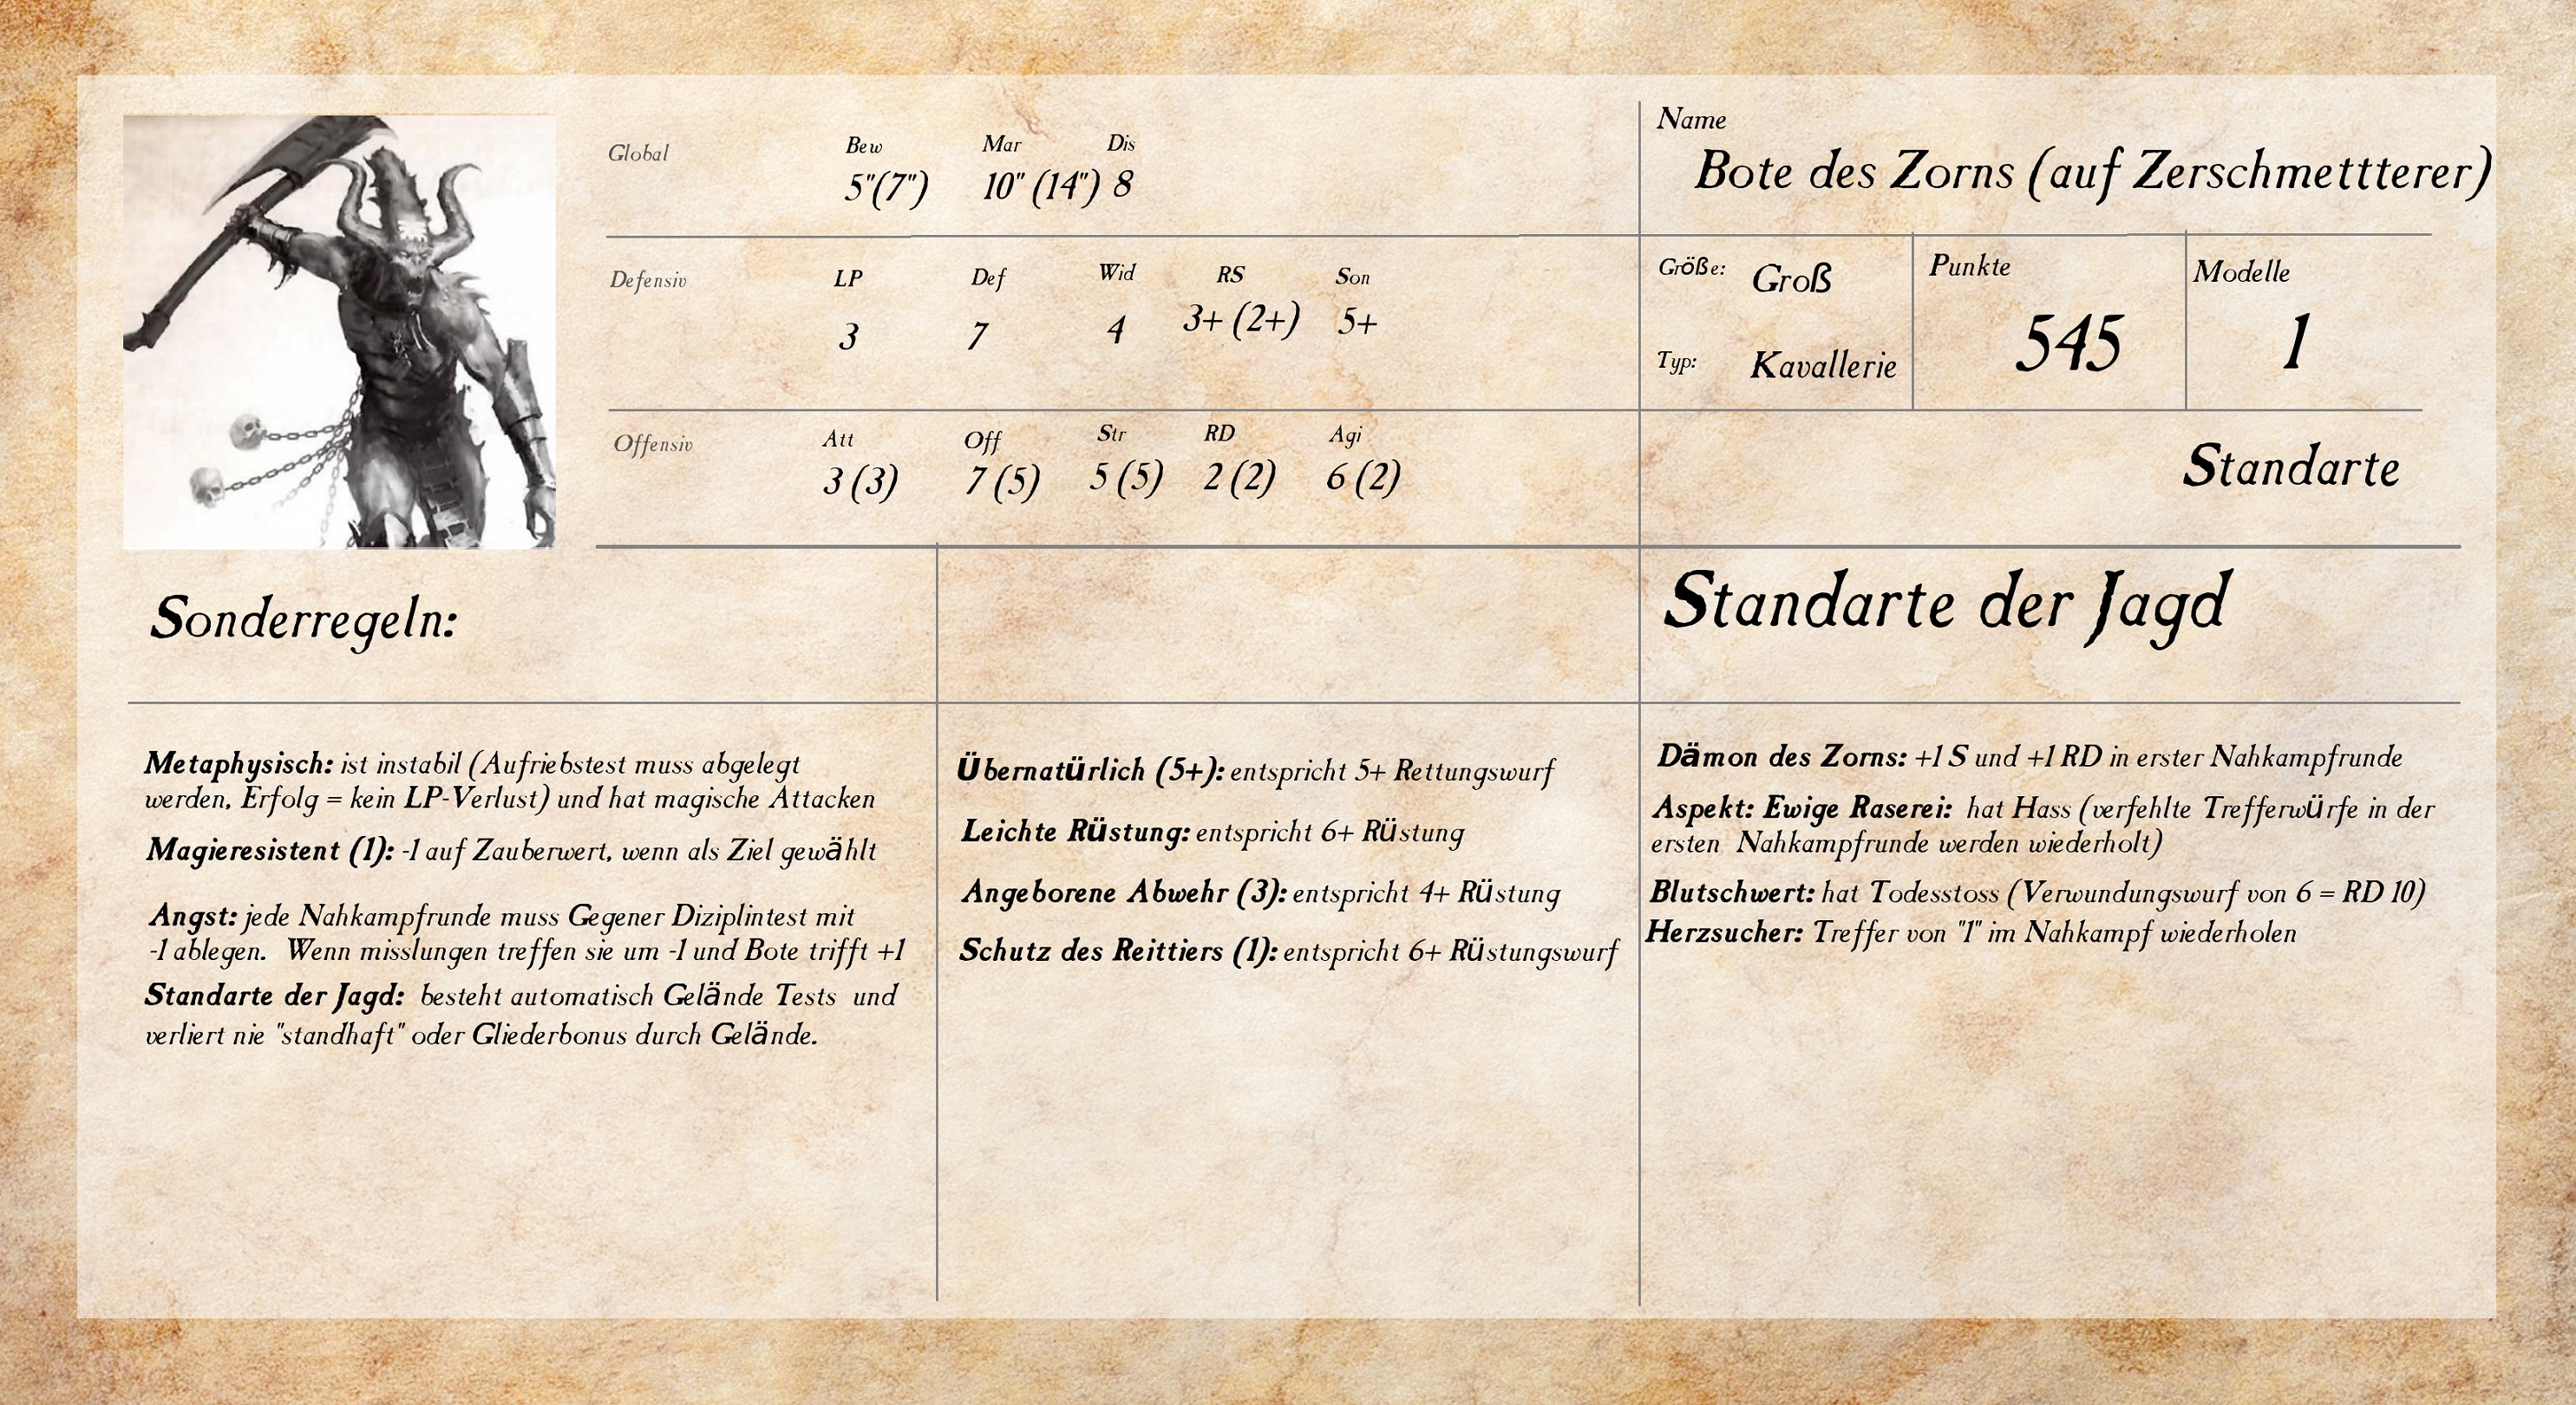 Name
Bote des Zorns (auf Zerschmettterer)
Global
Bew Mar Dis
5"(7") 10" (14") 8
Defensiv
LP Def Wid RS Son
3 7 4 3+ (2+) 5+
Größe: Groß
Typ: Kavallerie
Punkte
545
Modelle
1
Offensiv
Att Off Str RD Agi
3 (3) 7 (5) 5 (5) 2 (2) 6 (2)
Standarte
Sonderregeln:
Standarte der Jagd
Metaphysisch: ist instabil (Aufriebstest muss abgelegt
werden, Erfolg = kein LP-Verlust) und hat magische Attacken
Magieresistent (1): -1 auf Zauberwert, wenn als Ziel gewählt
Angst: jede Nahkampfrunde muss Gegener Diziplintest mit
-1 ablegen. Wenn misslungen treffen sie um -1 und Bote trifft +1
Standarte der Jagd: besteht automatisch Gelände Tests und
verliert nie "standhaft" oder Gliederbonus durch Gelände.
Übernatürlich (5+): entspricht 5+ Rettungswurf
Leichte Rüstung: entspricht 6+ Rüstung
Angeborene Abwehr (3): entspricht 4+ Rüstung
Schutz des Reittiers (1): entspricht 6+ Rüstungswurf
Dämon des Zorns: +1 S und +1 RD in erster Nahkampfrunde
Aspekt: Ewige Raserei: hat Hass (verfehlte Trefferwürfe in der
ersten Nahkampfrunde werden wiederholt)
Blutschwert: hat Todesstoss (Verwundungswurf von 6 = RD 10)
Herzsucher: Treffer von "1" im Nahkampf wiederholen